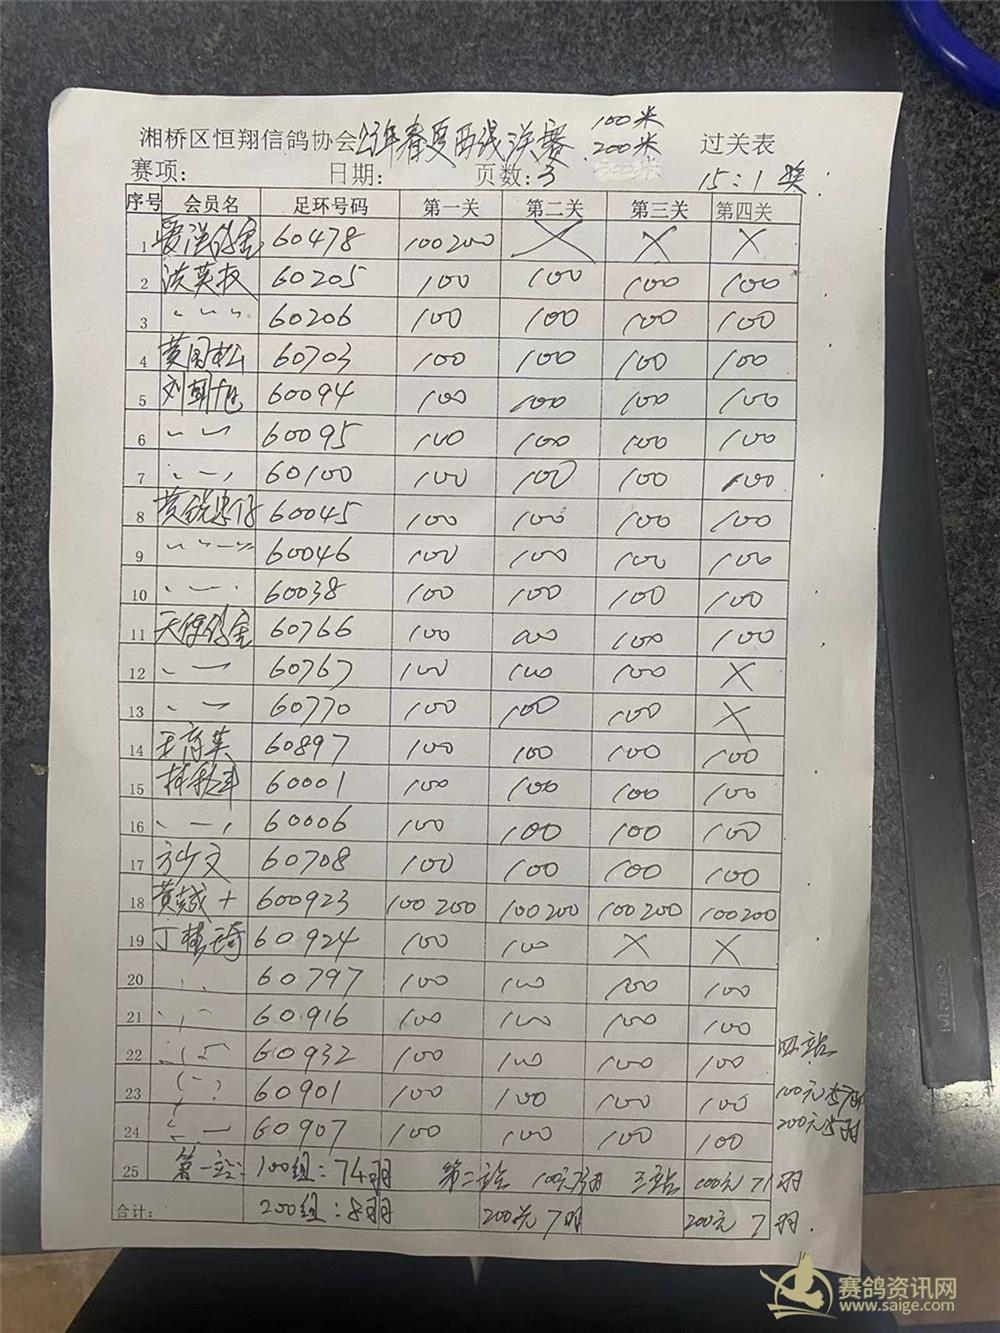 湘桥区恒翔信鸽协会 年春夏西线决赛 100米 过关表
200米
赛项: 日期: 页数:3 15:1 奖
序号 会员名 足环号码 第一关 第二关 第三关 第四关
1 60478 100 200 X X X
2 洪英权 60205 100 100 100 100
3 〃 60206 100 100 100 100
4 黄国松 60703 100 100 100 100
5 刘朝旭 60094 100 100 100 100
6 〃 60095 100 100 100 100
7 〃 60100 100 100 100 100
8 60045 100 100 100 100
9 〃 60046 100 100 100 100
10 〃 60038 100 100 100 100
11 60766 100 100 100 100
12 〃 60767 100 100 100 X
13 〃 60770 100 100 100 X
14 60897 100 100 100 100
15 60001 100 100 100 100
16 〃 60006 100 100 100 100
17 方少文 60708 100 100 100 100
18 600923 100 200 100 200 100 200 100 200
19 60924 100 100 X X
20 〃 60797 100 100 100 100
21 〃 60916 100 100 100 100
22 〃 60932 100 100 100 100
四站
23 〃 60901 100 100 100 100
100元
24 〃 60907 100 100 100 100
200元5羽
25 第一站: 100组:74羽 第二站 100元 三站 100元 71羽
合计: 200组:8羽 200元 7羽 200元 7羽.
赛鸽资讯网
www.saige.com